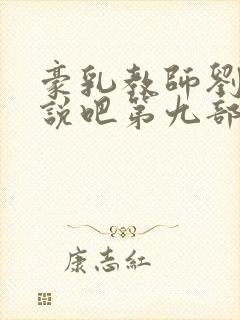 豪乳教師劉
說吧第九部
康志紅